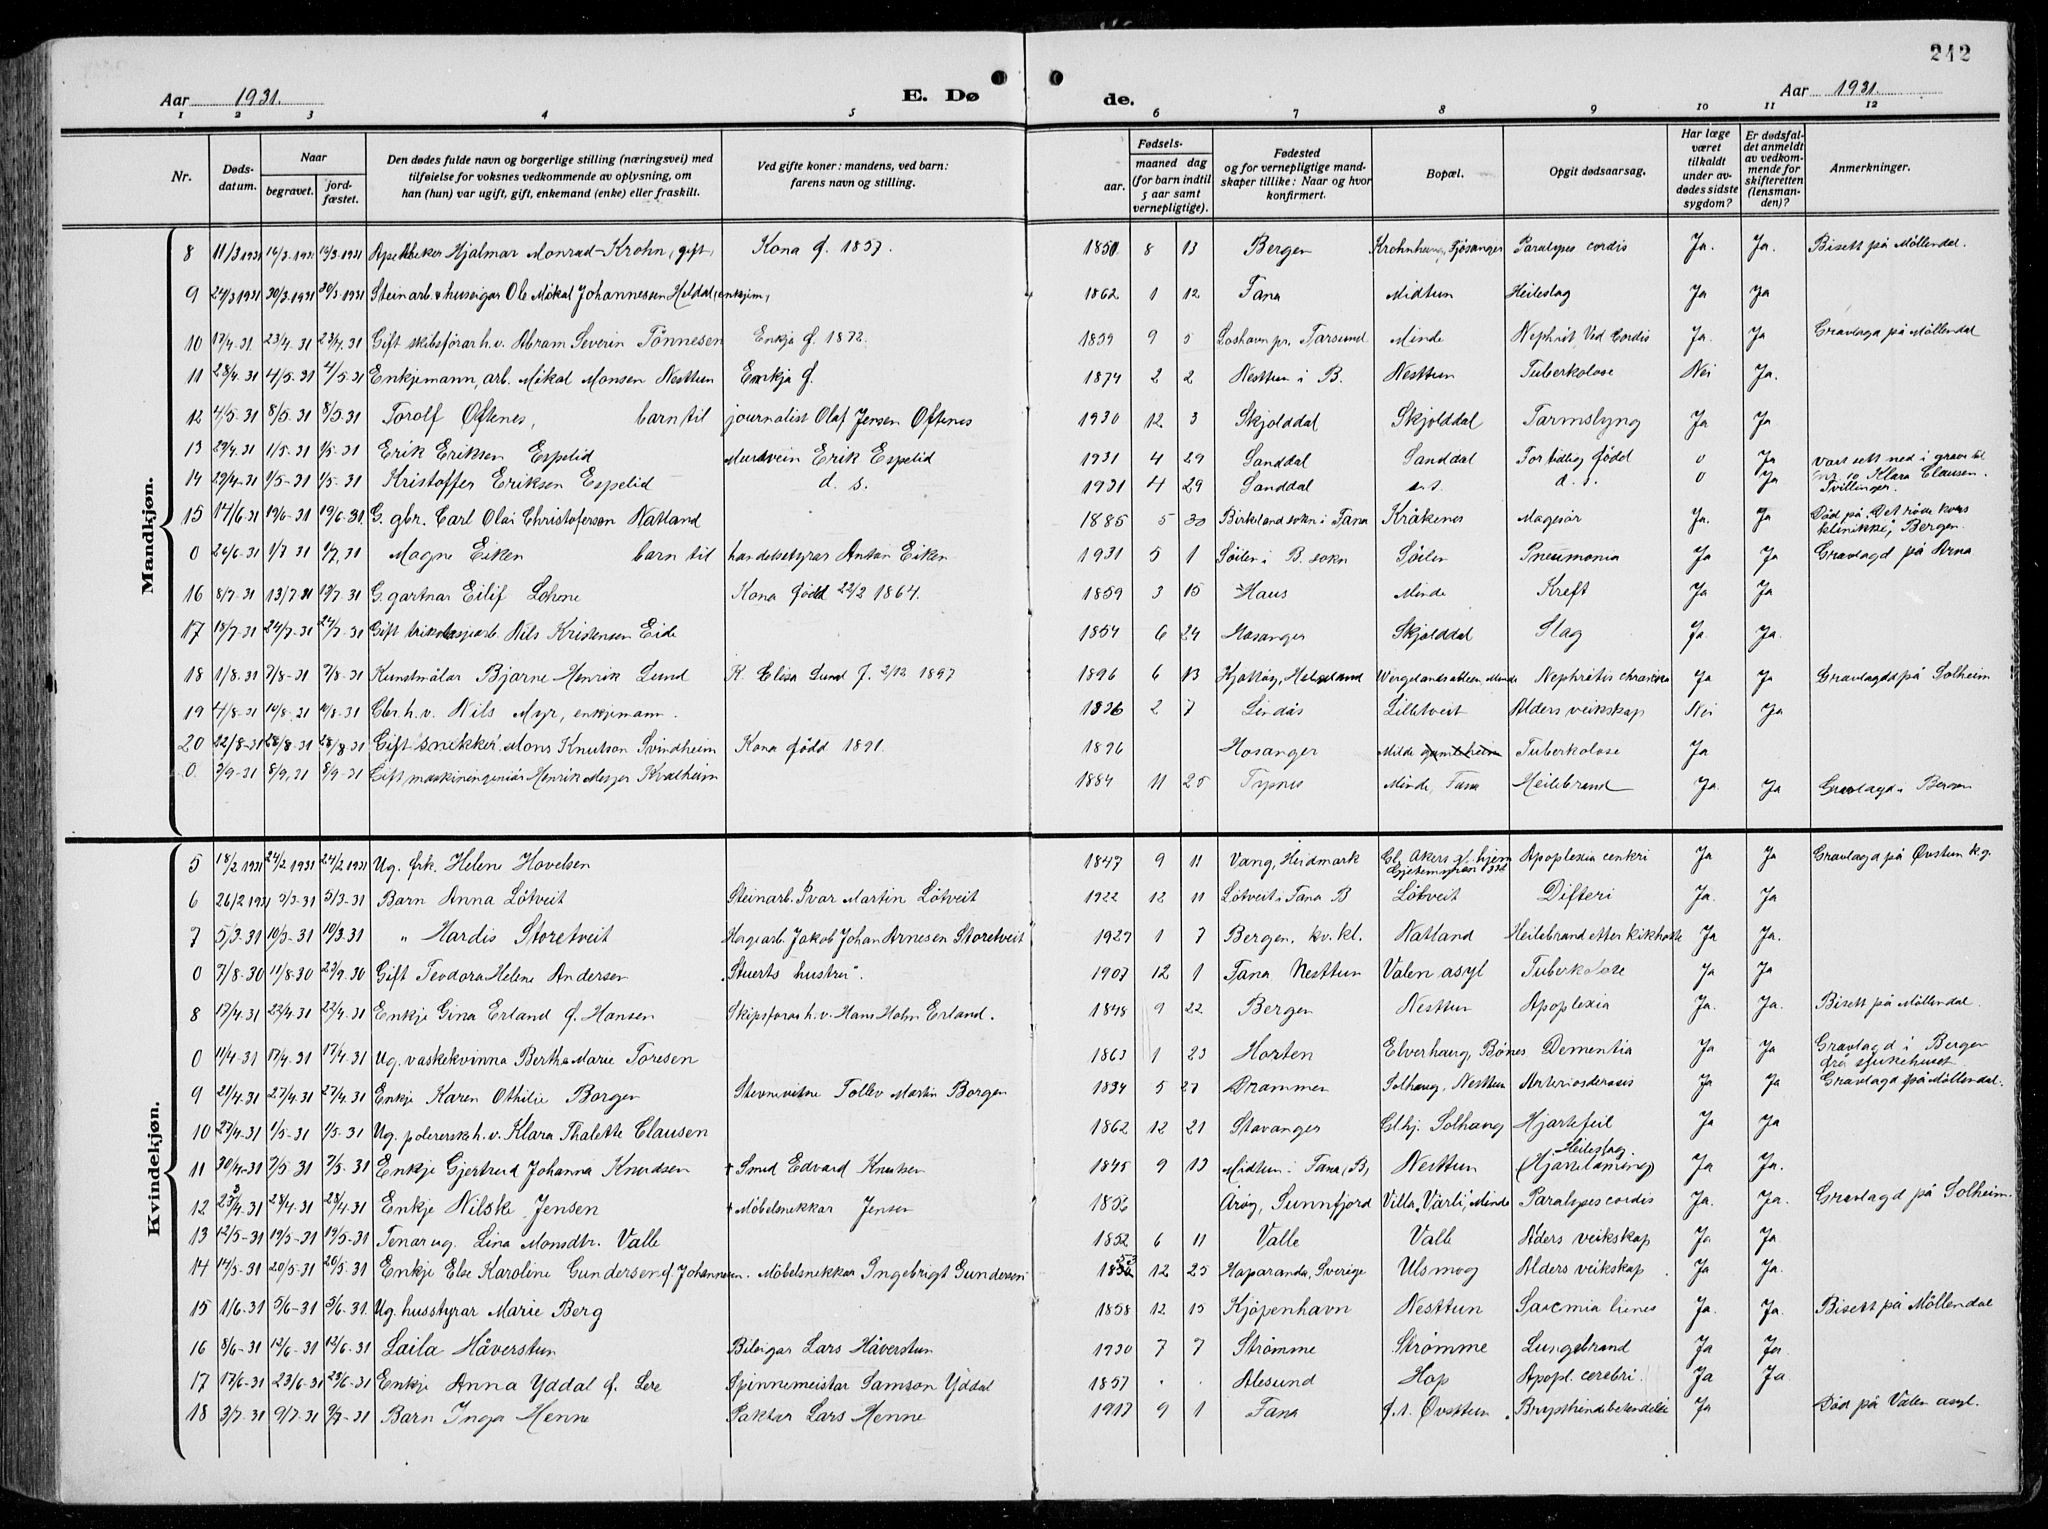 242
Aar 1931. E. Dø de. Aar 1931.
1 2 3 4 5 6 7 8 9 10 11 12
Nr. Døds-datum. Naar begravet. jord-fæstet. Den dødes fulde navn og borgerlige stilling (næringsvei) med tilføielse for voksnes vedkommende av oplysning, om han (hun) var ugift, gift, enkemand (enke) eller fraskilt. Ved gifte koner: mandens, ved barn: farens navn og stilling. Fødsels- aar. maaned dag (for barn indtil 5 aar samt vernepligtige). Fødested og for vernepligtige mand-skaper tillike: Naar og hvor konfirmert. Bopæl. Opgit dødsaarsag. Har læge været tilkaldt under av-dødes sidste sygdom? Er dødsfal-det anmeldt av vedkom-mende for skifteretten (lensman-den)? Anmerkninger.
Mandkjøn.
8 11/3 1931 16/3-1931 Apotheker Hjalmar Monrad-Krohn, gift, Kona f. 1857. 1850 8 13 Bergen Fjøsanger Paralyses cordis Ja. Ja. Bisett på Möllendal.
9 24/3 1931 30/3-1931 30/3-1931 Steinarb. & huseigar Ole Mikal Johannessen Heldal, enkjem, 1862 1 12 Fana Midtun Heileslag Ja Ja
10 17/4-31 23/4-31 23/4-31 Gift skibsförar h.v. Abram Severin Tönnesen Enkja f. 1872. 1859 9 5 Loshavn pr. Farsund Minde Nephrit. Ved Cordis Ja. Ja Gravlagd på Möllendal
11 28/4-31 4/5-31 4/5-31 Enkjemann, arb. Mikal Monsen Nesttun Enkja f. 1874 2 2 Nesttun i B. Nesttun Tuberkolose Nei Ja.
12 4/5-31 8/5-31 8/5-31 Torolf Oftenes, barn til journalist Olaf Jensen Oftenes 1930 12 3 Skjolddal Skjolddal Tarmslyng Ja Ja
13 29/4-31 1/5-31 1/5-31 Erik Eriksen Espelid Erik Espelid 1931 4 29 Sanddal Sanddal For tidleg född 0 Ja Vart sett ned i grav til
14 29/4-31 1/5-31 1/5-31 Kristoffer Eriksen Espelid d. s. 1931 4 29 Sanddal d. s. 0 Ja nr. 10 Klara Clausen. Tvillingar.
15 14/6-31 19/6-31 19/6-31 G. gbr. Carl Olai Christofersen Natland 1885 5 30 Birkeland sokn i Fana Kråkenes Magesår Ja. Ja Död på "Det röde kors klinikk", Bergen.
0 26/6-31 1/7-31 1/7-31 Magne Eiken barn til handelsstyrar Antan Eiken 1931 5 1 Söilen i B. sokn Söilen Pneumonia Ja Ja Gravlagd på Arna
16 8/7-31 13/7-31 13/7-31 G. gartnar Eilif Lohne Kona född 22/2 1864. 1859 3 15 Haus Minde Kreft Ja Ja
17 18/7-31 24/7-31 24/7-31 Gift trikotasjearb. Nils Kristensen Eide 1854 6 24 Mosanger Skjolddal Slag Ja Ja.
18 1/8-31 7/8-31 7/8-31 Kunstmålar Bjarne Henrik Lund K. Elisa Lund f. 2/12 1897 1896 6 13 Helgeland Wergelandsalleen, Minde Nephritis chronica Ja Ja Gravlagd på Solheim
19 4/8-31 10/8-31 10/8-31 Gbr. h. v. Nils Myr, enkjemann. 1836 2 7 Lindås Lilletveit Alders veikskap Nei Ja
20 22/8-31 28/8-31 28/8-31 Gift snekker Mons Knutson Svindheim Kona född 1891. 1896 Hosanger Milde gamleheim Tuberkolose Ja
0 3/9-31 8/9-31 8/9-31 Gift maskiningeniör Henrik Meyer Kvalheim 1884 11 25 Tysnes Minde, Fana Heilebrand Ja. Ja Gravlagd i Bergen
Kvindekjøn.
5 18/2 1931 24/2 1931 24/2 1931 Ug. frk. Helene Hovelsen 1847 9 11 Vang, Heidmark Apoplexia cerebri Ja Ja Gravlagd på Øvstun k.g.
6 26/2 1931 5/3-31 5/3-31 Barn Anna Lötveit Steinarb. Ivar Martin Lötveit 1922 12 11 Lötveit i Fana B Lötveit Difteri Ja. Ja
7 5/3-31 10/3-31 10/3-31 " Hardis Storetveit Jakob Johan Arnesen Storetveit 1929 1 7 Bergen, kv. kl. Natland Heilebrand etter kikhoste Ja Ja.
0 7/8-30 11/8-30 23/9-30 Gift Teodora Helene Andersen "Stuerts hustru". 1907 12 1 Fana Nesttun Valen asyl Tuberkolose Ja Ja
8 17/4-31 22/4-31 22/4-31 Enkje Gina Erland f. Hansen Skipsförar h.v. Hans Holm Erland. 1848 9 22 Bergen Nesttun Apoplexia Ja. Ja. Bisett på Möllendal.
0 11/4-31 17/4-31 17/4-31 Ug. vaskekvinna Bertha Marie Toresen 1863 1 23 Horten Elverhaug, Bönes Dementia Ja Ja Gravlagd i Bergen frå sjukehuset
9 21/4-31 27/4-31 27/4-31 Enkje Karen Othilie Borgen Stevnevitne Tollev Martin Borgen 1834 5 27 Drammen Solhaug, Nesttun Arteriosclerosis Ja Ja Gravlagd på Möllendal.
10 27/4-31 1/5-31 1/5-31 Ug. polererske h. v. Klara Thalette Clausen 1862 12 21 Stavanger Glhj. Solhaug Hjartefeil Ja Ja
11 30/4-31 7/5-31 7/5-31 Enkje Gjertrud Johanna Knudsen + Smed Edvard Knutsen 1845 9 13 Midtun i Fana (B) Nesttun Heileslag. (Hjartelaming) Ja Ja.
12 28/4-31 28/4-31 Enkje Nilske Jensen + Möbelsnekkar Jensen 1856 Sunnfjord Villa "Varli", Minde Paralyses cordis Ja. Ja. Gravlagd på Solheim.
13 12/5-31 19/5-31 19/5-31 Tenar ug. Lina Monsdtr. Valle 1852 6 11 Valle Valle Alders veikskap Ja Ja
14 14/5-31 20/5-31 20/5-31 Enkje Else Karoline Gundersen f. Johannesen. Möbelsnekkar Ingebrigt Gundersen 12 25 Haparanda, Sverige Ulsmog Alders veikskap Ja Ja.
15 1/6-31 5/6-31 5/6-31 Ug. husstyrar Marie Berg 1858 12 15 Kjöpenhavn Nesttun Ja. Ja. Bisett på Möllendal
16 8/6-31 12/6-31 12/6-31 Laila Håverstun Bileigar Lars Håverstun 1930 7 7 Strömme Strømme Lungebrand Ja Ja.
17 17/6-31 23/6-31 23/6-31 Enkje Anna Yddal f. Lere Spinnemeistar Samson Yddal 1857 . . Alesund Hop Apopl. cerebri. Ja Ja.
18 3/7-31 9/7-31 9/7-31 Barn Inga Henne Faktor Lars Henne 1917 9 1 Fana f.t. Øvsttun Brysthindebetendelse Ja Död på Valen asyl.